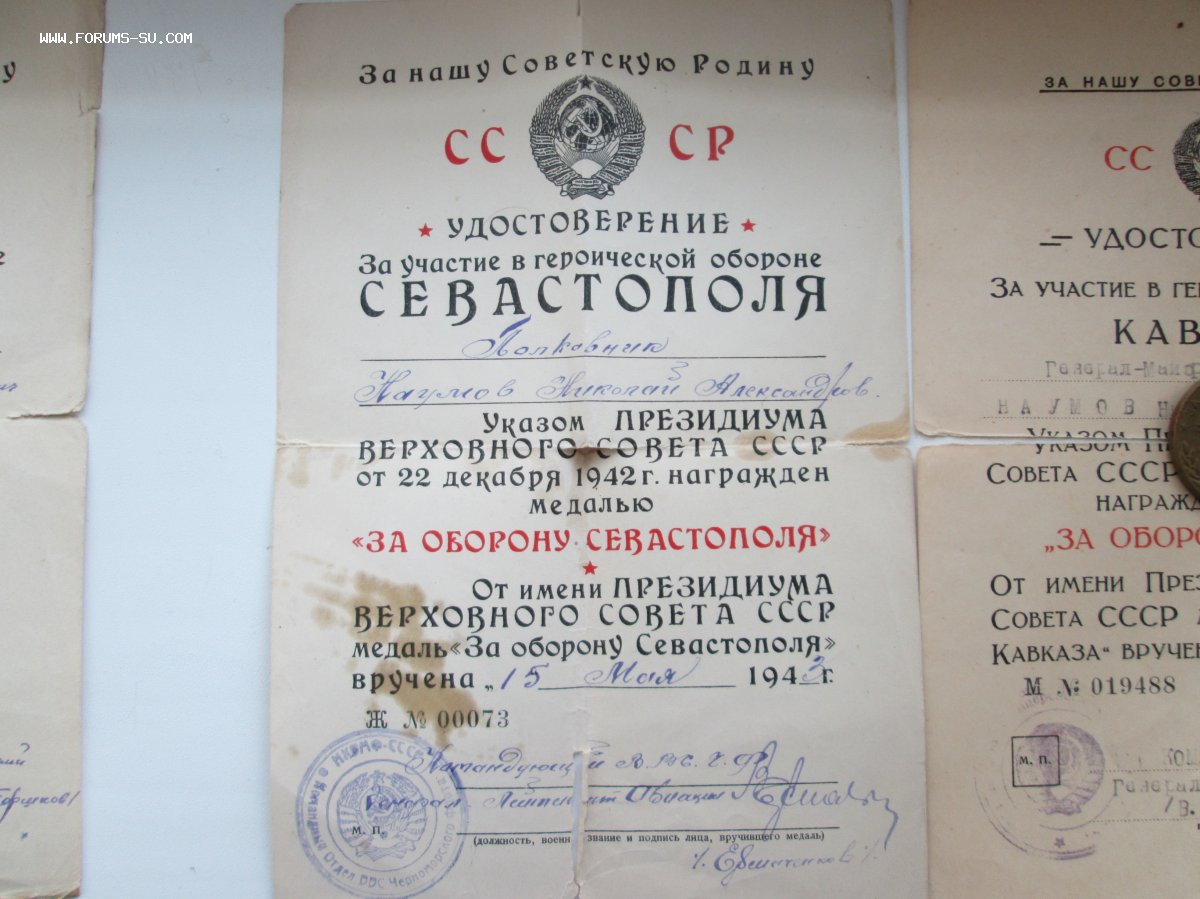 WWW.FORUMS-SU.COM
За нашу Советскую Родину
СС СР
УДОСТОВЕРЕНИЕ
За участие в героической обороне
СЕВАСТОПОЛЯ
Полковник
Наумов Николай Александров.
Указом ПРЕЗИДИУМА
ВЕРХОВНОГО СОВЕТА СССР
от 22 декабря 1942 г. награжден
медалью
«ЗА ОБОРОНУ СЕВАСТОПОЛЯ»
От имени ПРЕЗИДИУМА
ВЕРХОВНОГО СОВЕТА СССР
медаль «За оборону Севастополя»
вручена „15 Мая 1943 г.
Ж № 00073
Командующий В.В.С. Ч.Ф.
Генерал Лейтенант Авиации
М. П.
(должность, военн звание и подпись лица, вручившего медаль)
/. Ермаченков /.
НКВМФ-СССР
Отдел ВВС Черноморского
ЗА НАШУ СОВЕ
СС
УДОСТО
ЗА УЧАСТИЕ В ГЕ
КАВ
Генерал-Майо
НАУМОВ Н
УКАЗОМ П
СОВЕТА СССР
НАГРАЖД
„ЗА ОБОРО
ОТ ИМЕНИ ПРЕЗ
СОВЕТА СССР
КАВКАЗА“ ВРУЧЕ
М № 019488
М. П.
Генерал
/В.
Горшков/